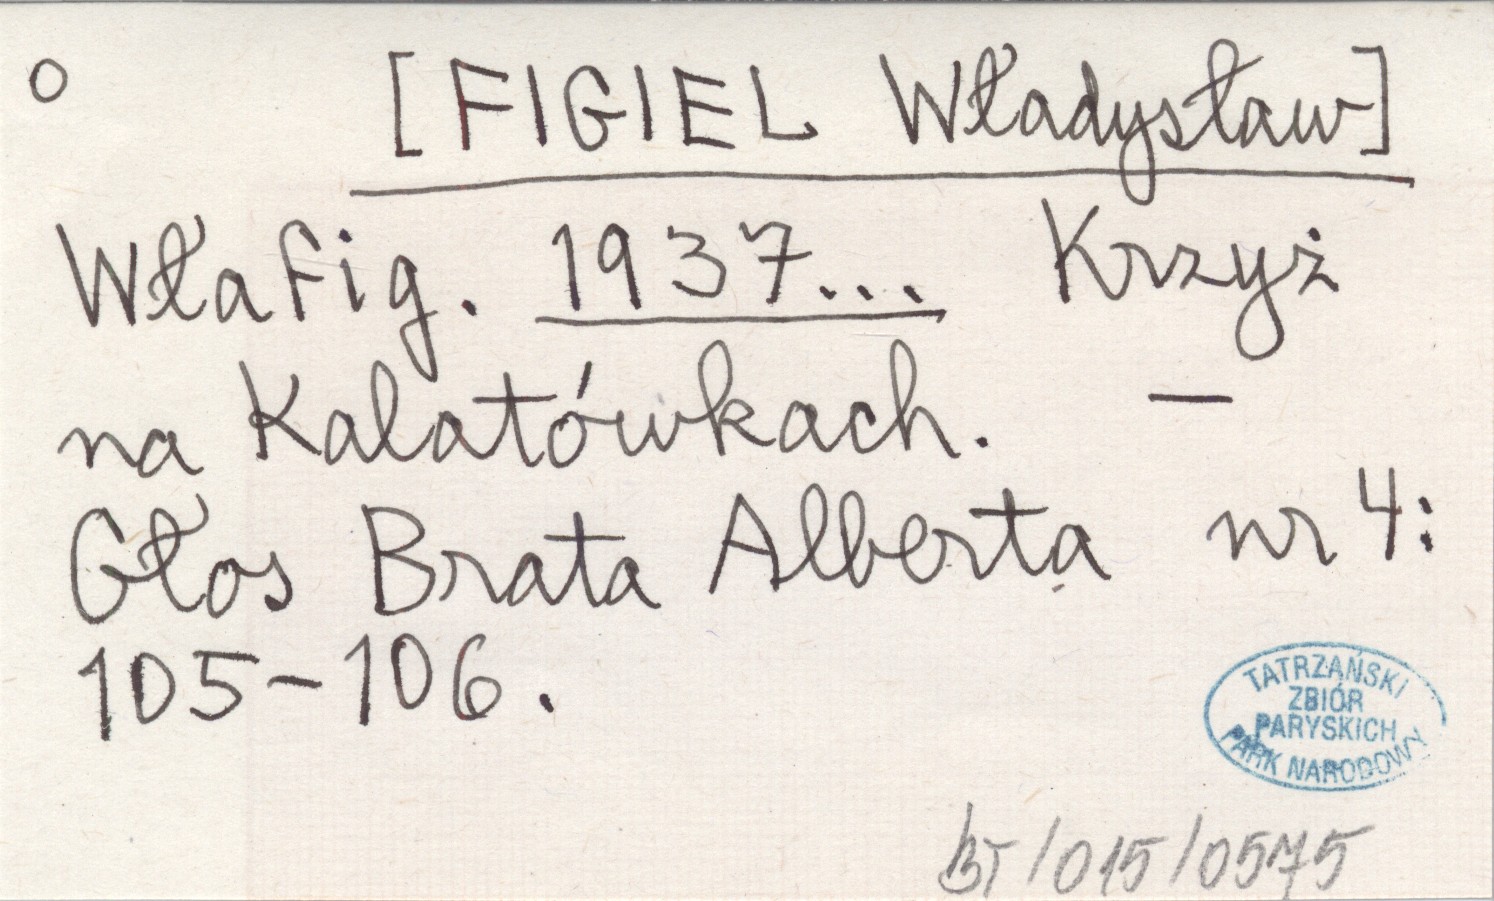 o [FIGIEL Władysław]
WłaFig. 1937... Krzyż
na Kalatówkach. —
Głos Brata Alberta nr 4:
105-106.
TATRZAŃSKI
ZBIÓR
PARYSKICH
PARK NARODOWY
BT/015/0575